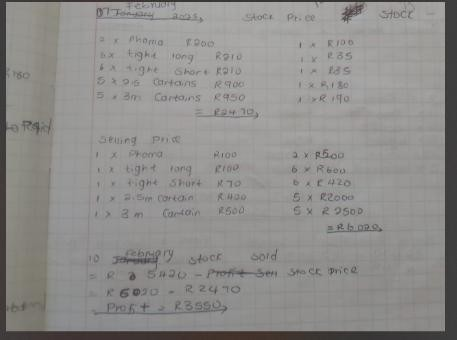 February
07 January 2025, Stock Price Stock
2 x Phoma R200 1 x R100
6x tight long R210 1 x R35
6 x tight Short R210 1 x R35
5 x 2.5 Cartains R900 1 x R180
5 x 3m Cartains R950 1 x R190
= R2470,
Selling Price
1 x Phoma R100 2 x R500
1 x tight long R100 6 x R600
1 x tight Short R70 6 x R420
1 x 2.5m Cartain R400 5 x R2000
1 x 3m Cartain R500 5 x R2500
= R6020,
February
10 January Stock Sold
= R 5420 - Profit Sell Stock Price
= R6020 - R2470
= Profit = R3550,
R180